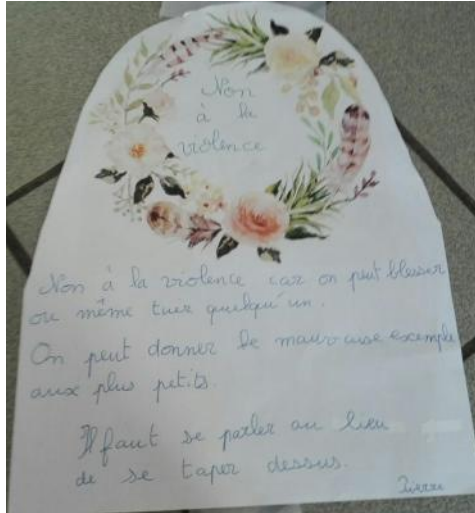 Non
à la
violence
Non à la violence car on peut blesser
ou même tuer quelqu'un.
On peut donner le mauvaise exemple
aux plus petits.
Il faut se parler au lieu
de se taper dessus.
Pierre